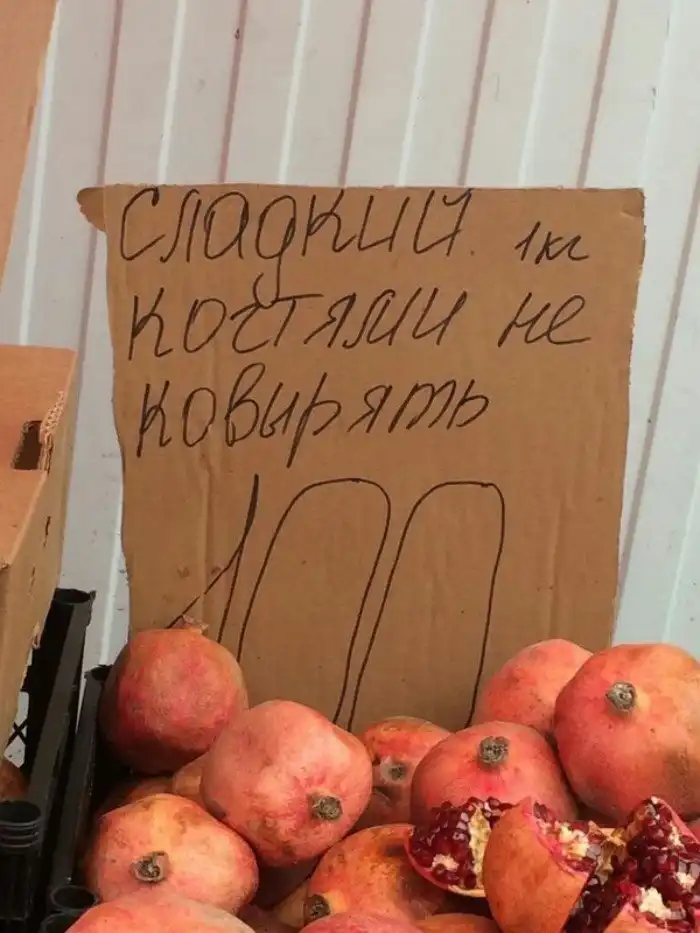 СЛАДКИЙ. 1кг
КОСТЯМИ НЕ
КОВЫРЯТЬ
100